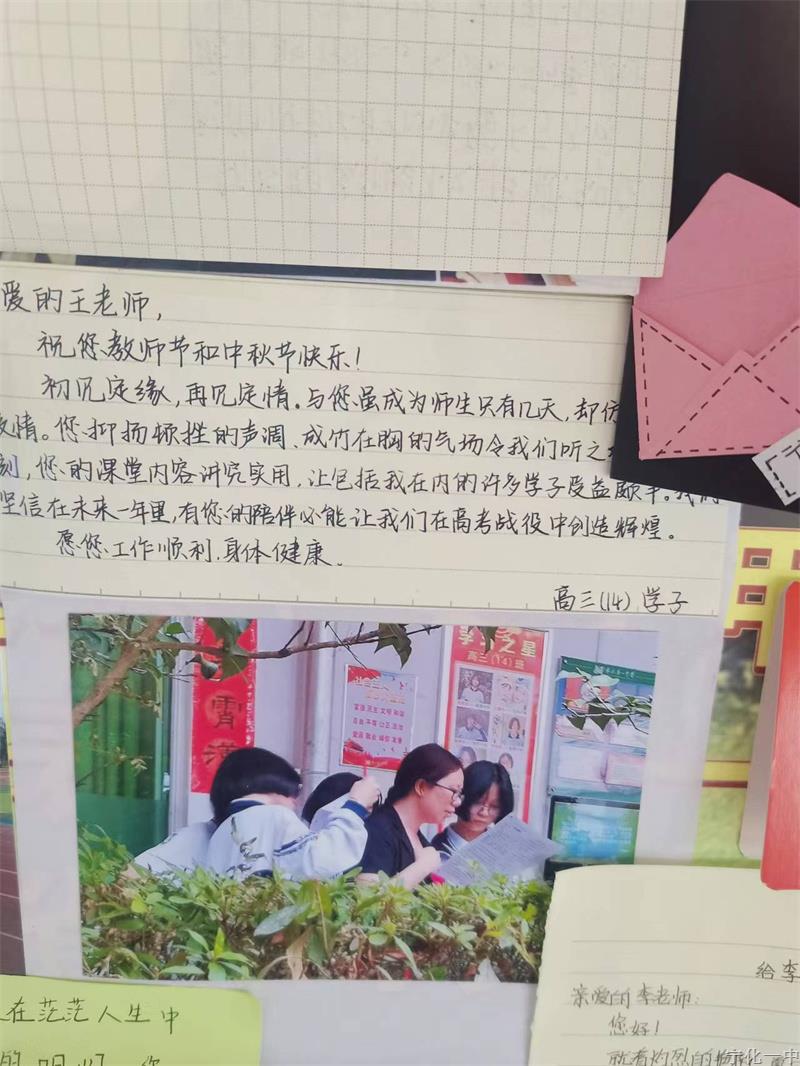 爱的王老师，
祝您教师节和中秋节快乐！
初见定缘，再见定情。与您虽成为师生只有几天，却仿
情。您抑扬顿挫的声调、成竹在胸的气场令我们听之
刻，您的课堂内容讲究实用，让包括我在内的许多学子受益颇丰。我们
坚信在未来一年里，有您的陪伴必能让我们在高考战役中创造辉煌。
愿您工作顺利，身体健康。
高三（14）学子
学习之星
高三（14）班
富强 民主 文明 和谐
自由 平等 公正 法治
爱国 敬业 诚信 友善
霄
在茫茫人生中
的明灯，您
给李
亲爱的李老师：
您好！
就着灼烈的
宁化一中